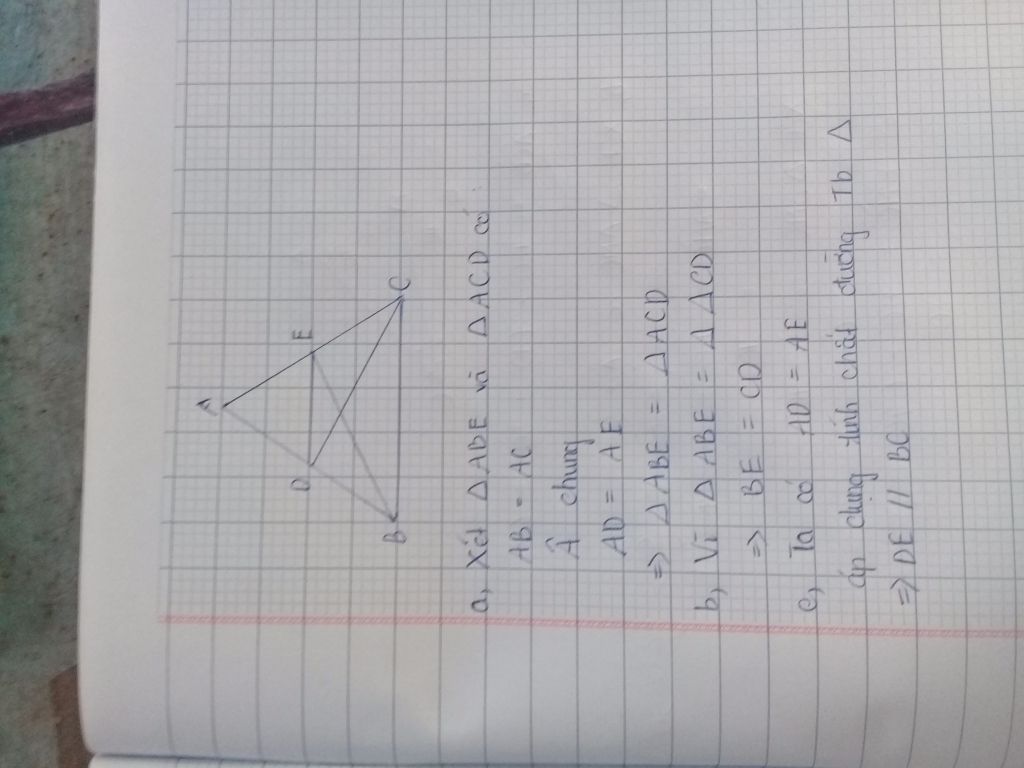 A
D
E
B
C
a, Xét △ ABE và △ ACD có
AB = AC
Â chung
AD = AE
=> △ ABE = △ ACD
b, Vì △ ABE = △ ACD
=> BE = CD
c, Ta có AD = AE
áp chụng tính chất đường Tb △
=> DE // BC